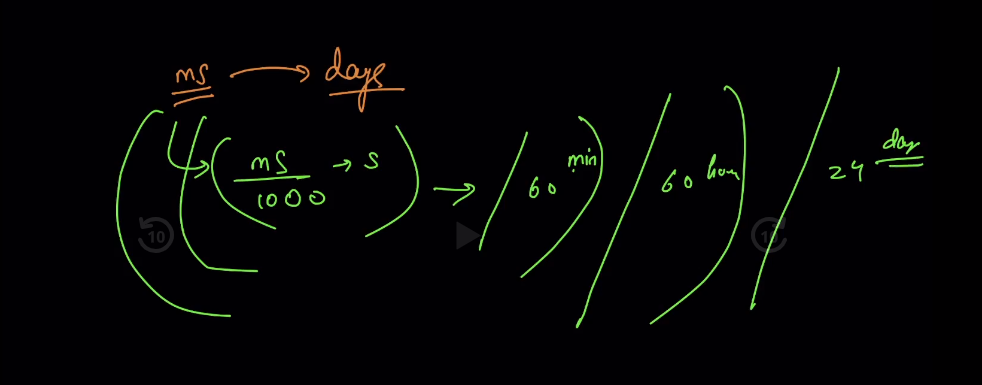 ms → days
(((ms/1000 → s) → /60 min) /60 hour) /24 day
10 10